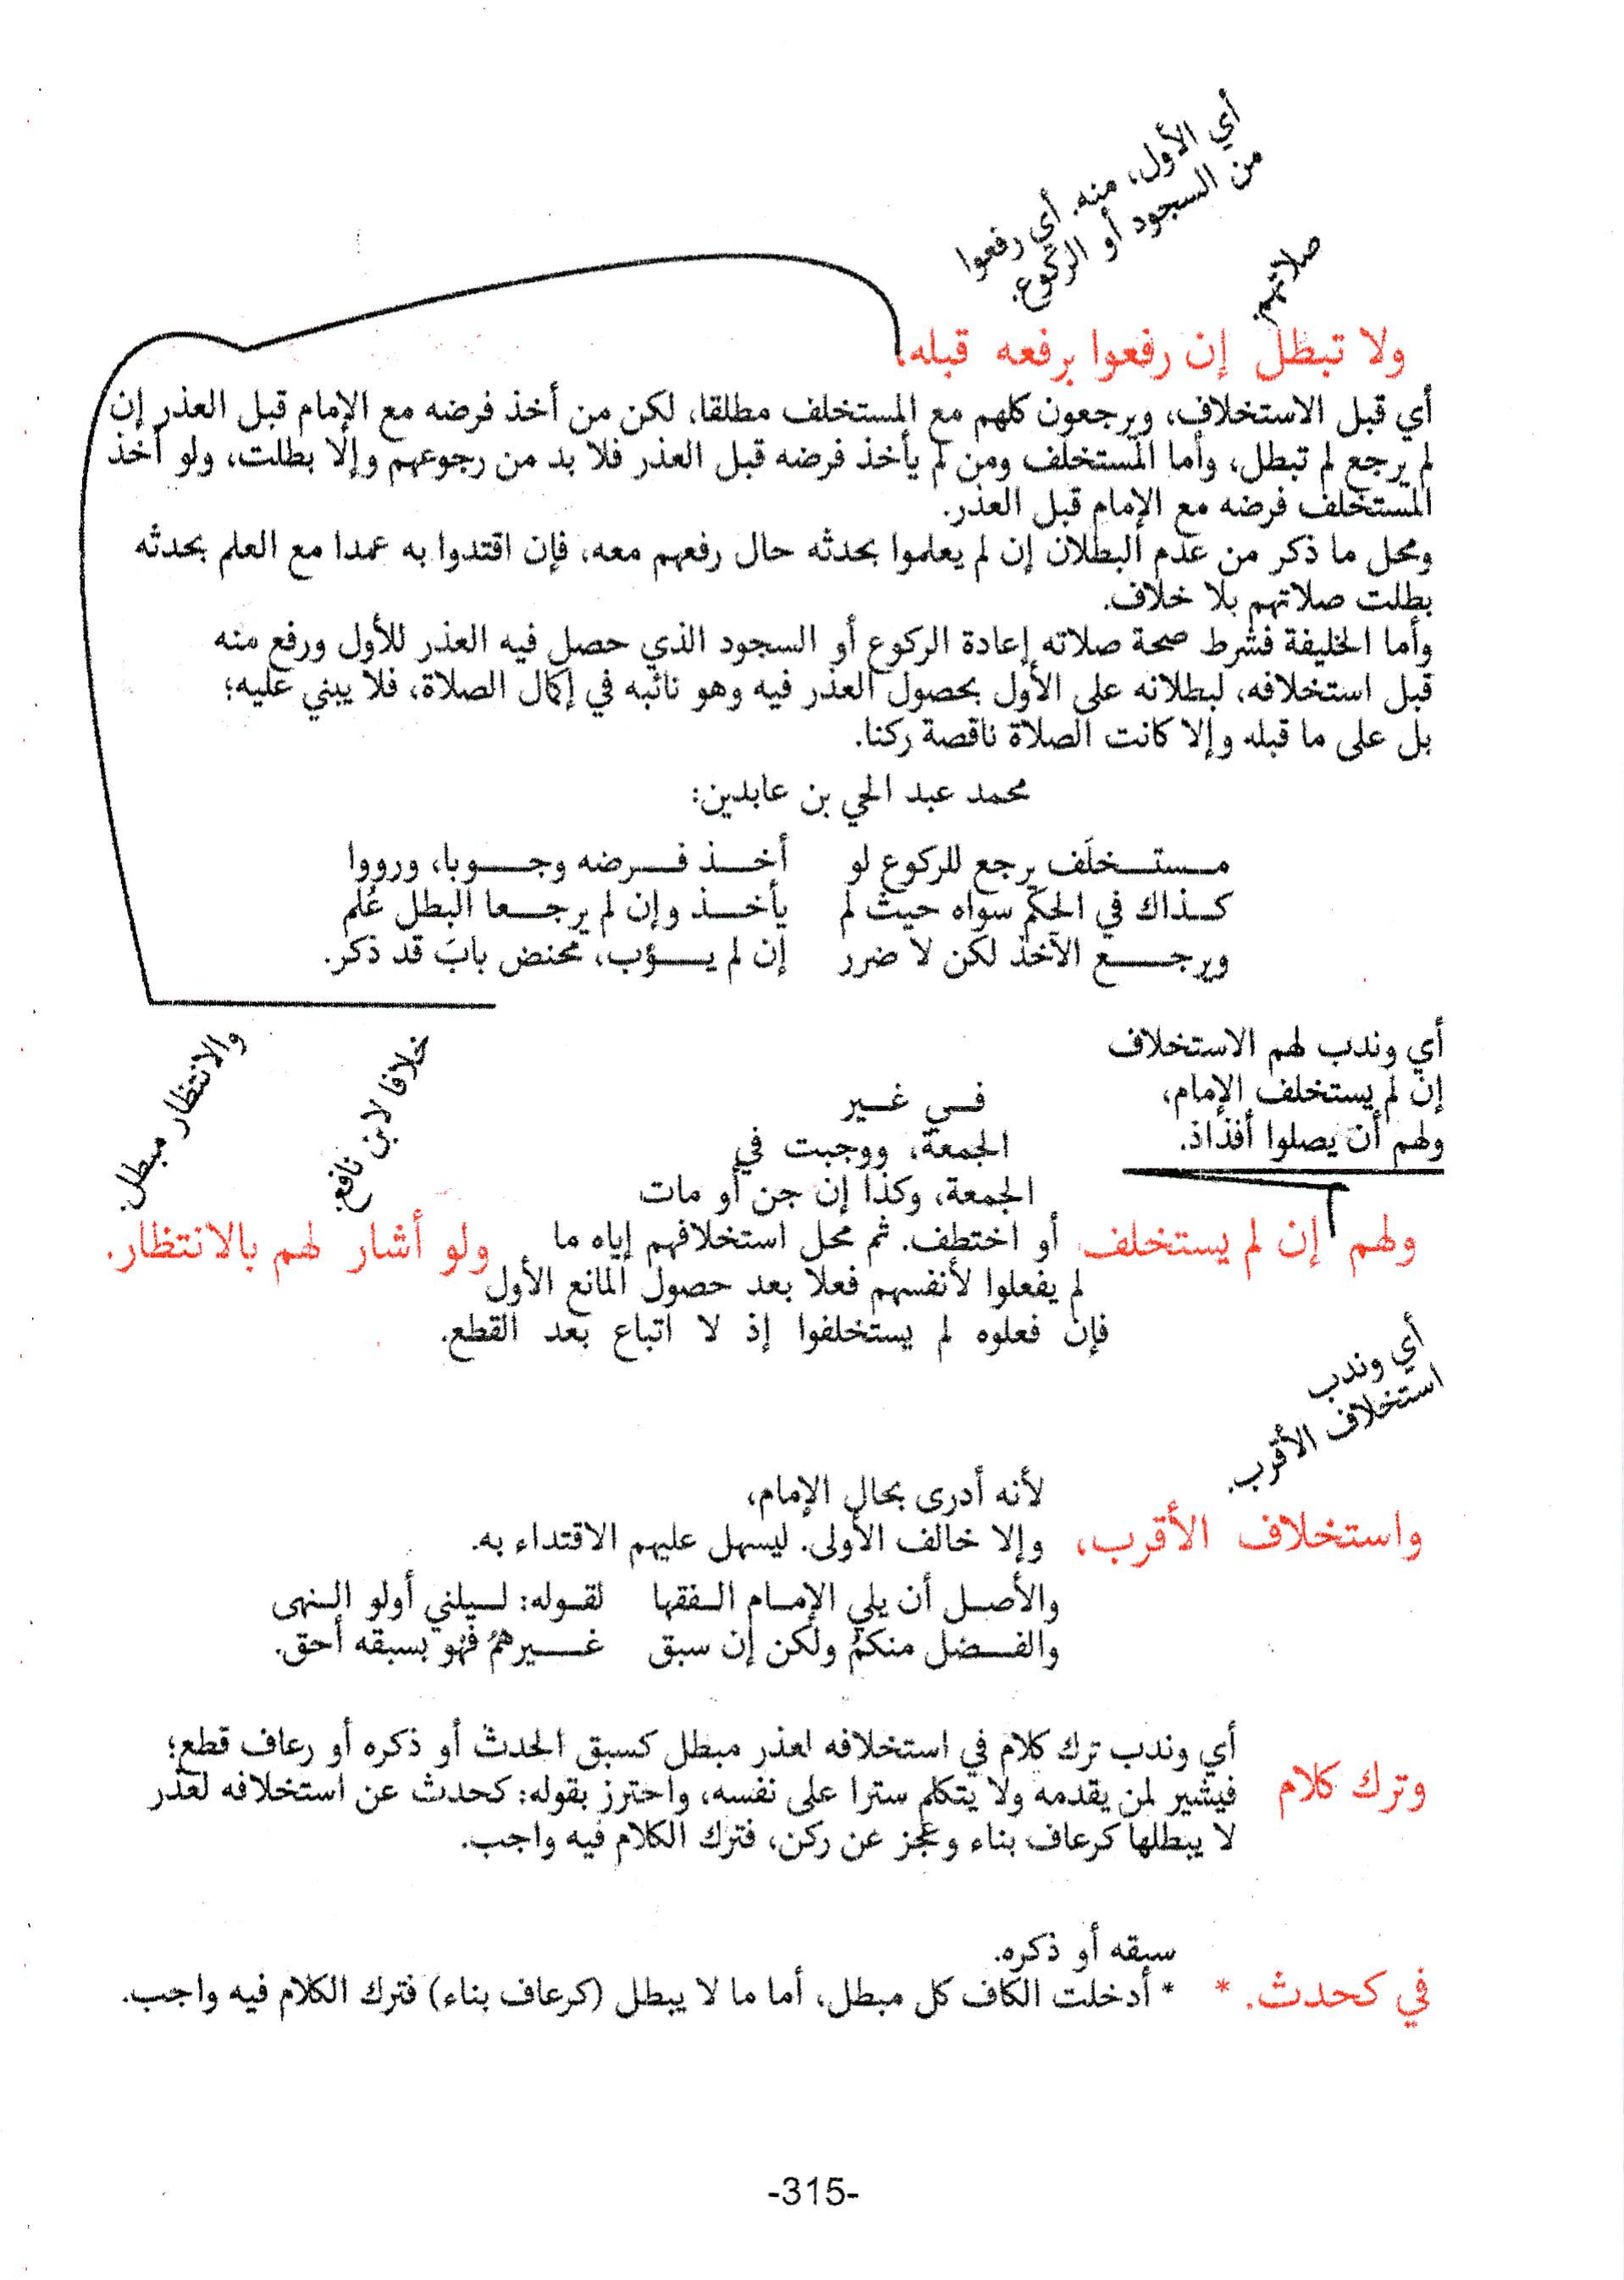 أي الأول، منه. أي رفعوا
من السجود أو الركوع.
صلاتهم.
ولا تبطل إن رفعوا برفعه قبله.
أي قبل الاستخلاف، ويرجعون كلهم مع المستخلف مطلقا، لكن من أخذ فرضه مع الإمام قبل العذر إن
لم يرجع لم تبطل، وأما المستخلف ومن لم يأخذ فرضه قبل العذر فلا بد من رجوعهم وإلا بطلت، ولو أخذ
المستخلف فرضه مع الإمام قبل العذر.
ومحل ما ذكر من عدم البطلان إن لم يعلموا بحدثه حال رفعهم معه، فإن اقتدوا به عمدا مع العلم بحدثه
بطلت صلاتهم بلا خلاف.
وأما الخليفة فشرط صحة صلاته إعادة الركوع أو السجود الذي حصل فيه العذر للأول ورفع منه
قبل استخلافه، لبطلانه على الأول بحصول العذر فيه وهو نائبه في إكمال الصلاة، فلا يبني عليه؛
بل على ما قبله وإلا كانت الصلاة ناقصة ركنا.
محمد عبد الحي بن عابدين:
مستخلَف يرجع للركوع لو أخذ فرضه وجوبا، ورووا
كذاك في الحكم سواه حيث لم يأخذ وإن لم يرجعا البطل عُلم
ويرجع الآخذ لكن لا ضرر إن لم يؤب، محنض بابَ قد ذكر.
أي وندب لهم الاستخلاف
إن لم يستخلف الإمام،
ولهم أن يصلوا أفذاذ.
ولهم إن لم يستخلف
في غير
الجمعة، ووجبت في
الجمعة، وكذا إن جن أو مات
أو اختطف. ثم محل استخلافهم إياه ما
لم يفعلوا لأنفسهم فعلا بعد حصول المانع الأول
فإن فعلوه لم يستخلفوا إذ لا اتباع بعد القطع.
خلافا لابن نافع.
والانتظار مبطل.
ولو أشار لهم بالانتظار.
أي وندب
استخلاف الأقرب.
واستخلاف الأقرب،
لأنه أدرى بحال الإمام،
وإلا خالف الأولى. ليسهل عليهم الاقتداء به.
والأصل أن يلي الإمام الفقها لقوله: ليلني أولو النهى
والفضل منكمُ ولكن إن سبق غيرهمُ فهْو بسبقه أحق.
وترك كلام
أي وندب ترك كلام في استخلافه لعذر مبطل كسبق الحدث أو ذكره أو رعاف قطع؛
فيشير لمن يقدمه ولا يتكلم سترا على نفسه، واحترز بقوله: كحدث عن استخلافه لعذر
لا يبطلها كرعاف بناء وعجز عن ركن، فترك الكلام فيه واجب.
في كحدث. *
سبقه أو ذكره.
* أدخلت الكاف كل مبطل، أما ما لا يبطل (كرعاف بناء) فترك الكلام فيه واجب.
-315-